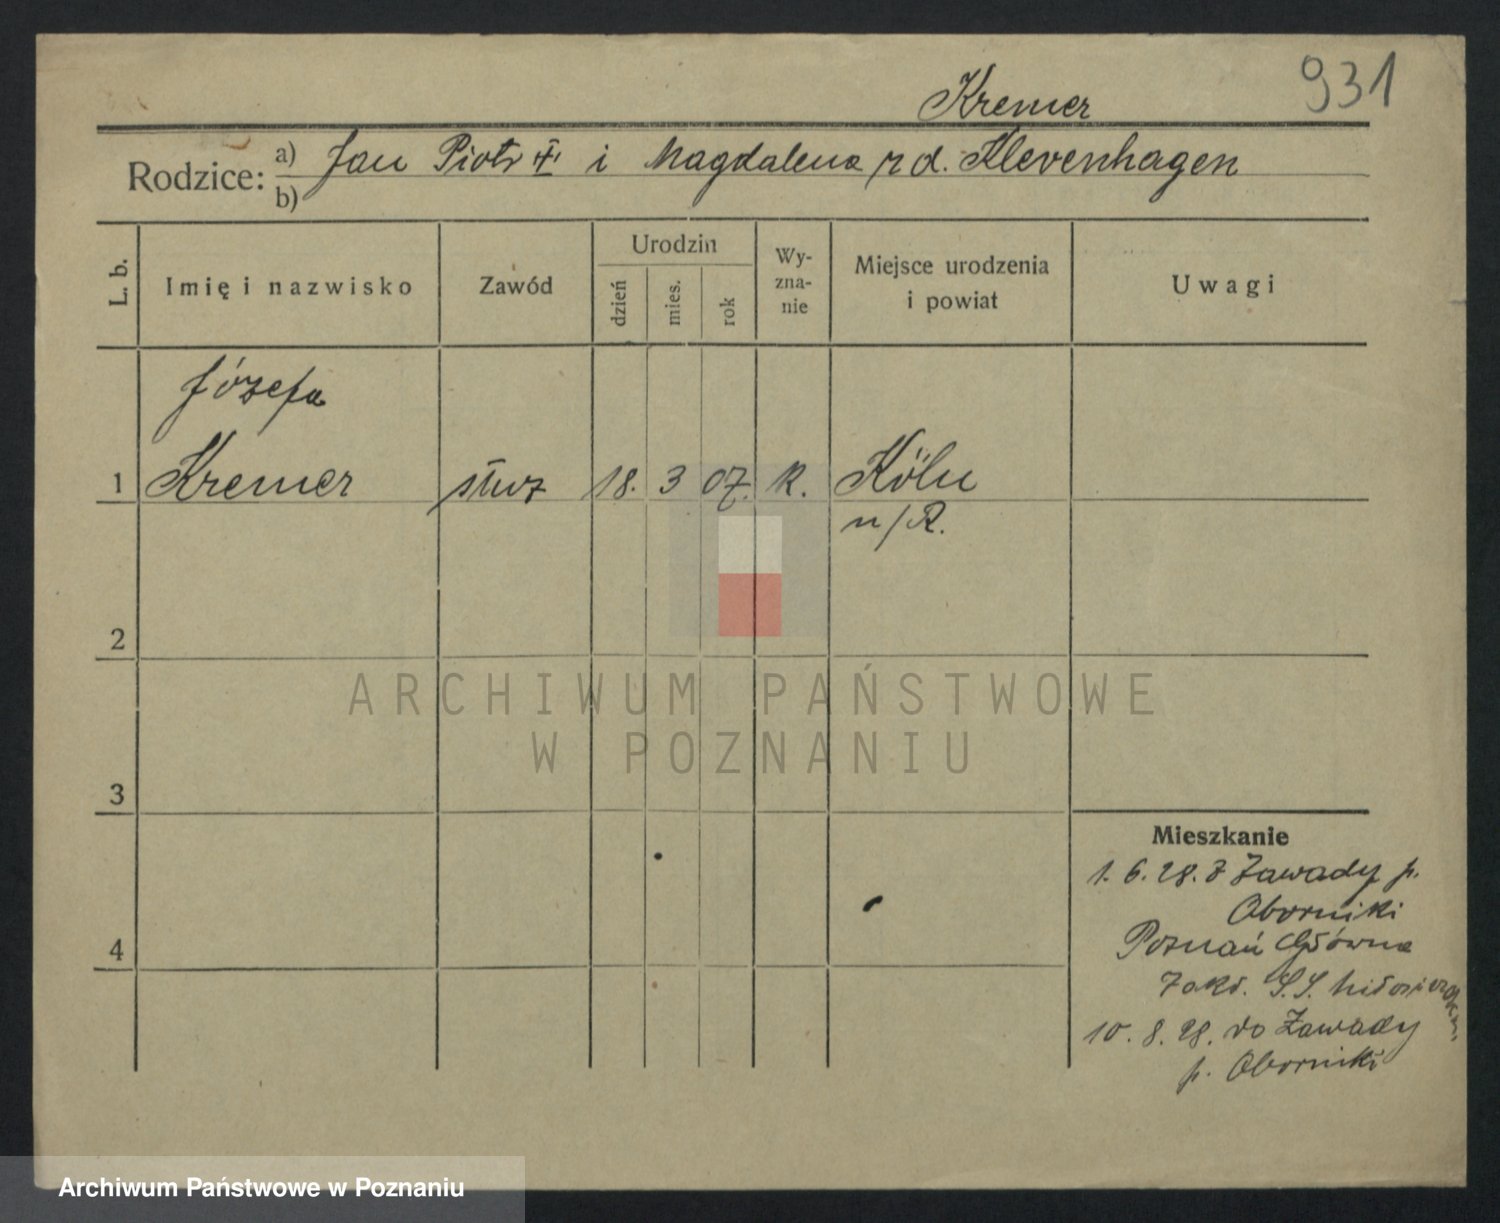 931
Kremer
Rodzice: a) Jan Piotr i Magdalena rd. Klevenhagen
b)
L. b.
Imię i nazwisko
Zawód
Urodzin
dzień
mies.
rok
Wy-
zna-
nie
Miejsce urodzenia
i powiat
Uwagi
Józefa
1 Kremer służ 18. 3 07. k. Köln
n/R.
2
3
4
Mieszkanie
1. 6. 28. z Zawady p.
Oborniki
Poznań Główna
Zakł. S.S. Miłosierdzia
10. 8. 28. do Zawady
p. Oborniki
ARCHIWUM PAŃSTWOWE
W POZNANIU
Archiwum Państwowe w Poznaniu